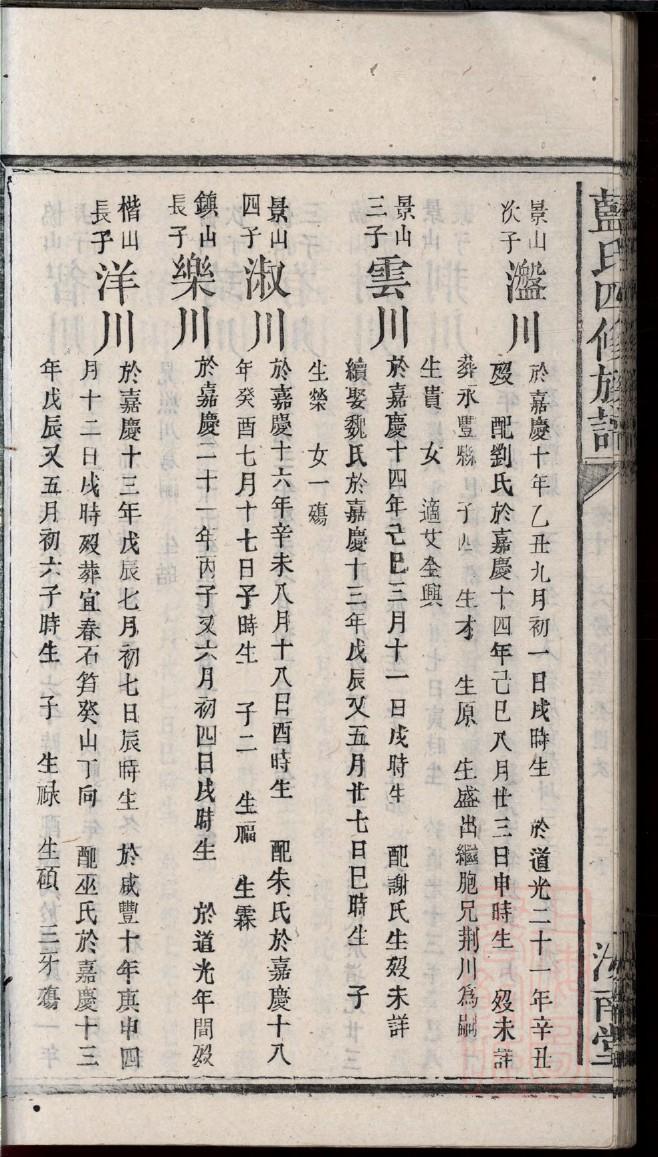 藍氏四修族譜
汝南堂
景山次子瀊川
於嘉慶十年乙丑九月初一日戌時生 於道光二十一年辛丑
歿 配劉氏於嘉慶十四年己巳八月廿三日申時生 歿未詳
葬永豐縣 子四 生才 生原 生盛出繼胞兄荆川為嗣
生貴 女 適艾全興
景山三子雲川
於嘉慶十四年己巳三月十一日戌時生 配謝氏生歿未詳
續娶魏氏於嘉慶十三年戊辰又五月廿七日巳時生 子
生榮 女一殤
景山四子淑川
於嘉慶十六年辛未八月十八日酉時生 配朱氏於嘉慶十八
年癸酉七月十七日子時生 子二 生福 生霖
鎮山長子樂川
於嘉慶二十一年丙子又六月初四日戌時生 於道光年間歿
楷山長子洋川
於嘉慶十三年戊辰七月初七日辰時生 於咸豐十年庚申四
月十二日戌時歿葬宜春石筲癸山丁向 配巫氏於嘉慶十三
年戊辰又五月初六子時生 子 生禄 生碩 三牙殤